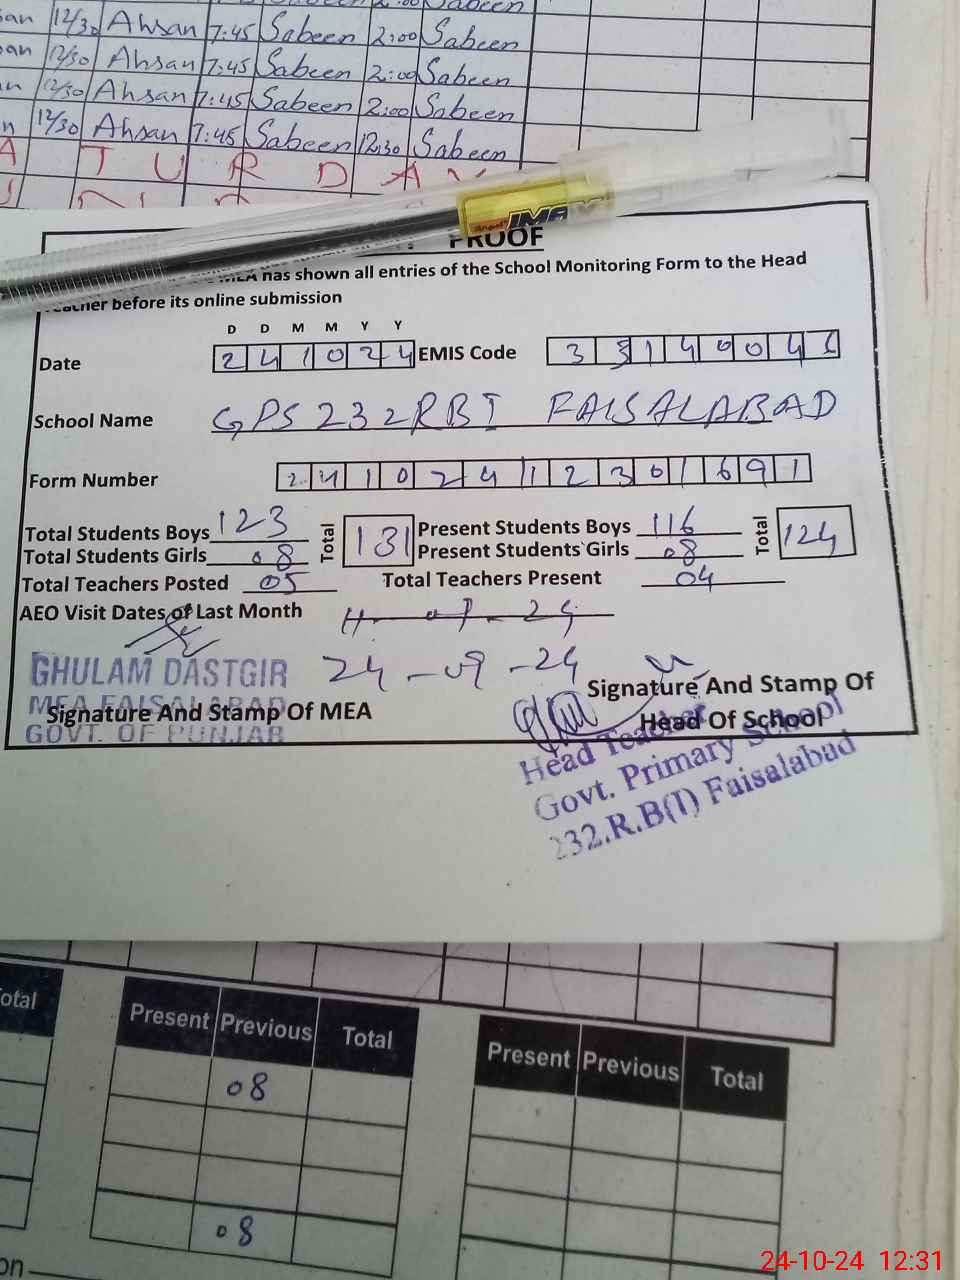 12/30 Ahsan 7:45 Sabeen 2:00 Sabeen
12/30 Ahsan 7:45 Sabeen 2:00 Sabeen
12/30 Ahsan 7:45 Sabeen 2:00 Sabeen
12/30 Ahsan 7:45 Sabeen 12:30 Sabeen
A T U R D A Y
PROOF
MEA has shown all entries of the School Monitoring Form to the Head
Teacher before its online submission
D D M M Y Y
Date 2 4 1 0 2 4 EMIS Code 3 3 1 4 0 0 4 1
School Name GPS 232 RB I FAISALABAD
Form Number 2 4 1 0 2 4 1 2 3 0 1 6 9 1
Total Students Boys 123 Total 131 Present Students Boys 116 Total 124
Total Students Girls 08 Present Students Girls 08
Total Teachers Posted 05 Total Teachers Present 04
AEO Visit Dates of Last Month
24-09-24
GHULAM DASTGIR
MEA FAISALABAD
GOVT. OF PUNJAB
Signature And Stamp Of MEA
Signature And Stamp Of
Head Of School
Head Teacher
Govt. Primary School
232.R.B(I) Faisalabad
Total Present Previous Total Present Previous Total
08
08
24-10-24 12:31